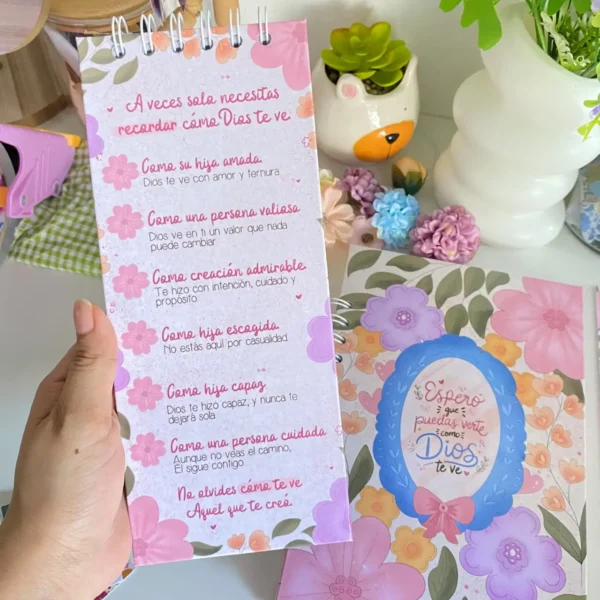 A veces solo necesitas
recordar cómo Dios te ve.
Como su hija amada.
Dios te ve con amor y ternura.
Como una persona valiosa
Dios ve en ti un valor que nada
puede cambiar
Como creación admirable.
Te hizo con intención, cuidado y
propósito
Como hija escogida.
No estás aquí por casualidad
Como hija capaz
Dios te hizo capaz, y nunca te
dejará sola
Como una persona cuidada
Aunque no veas el camino,
Él sigue contigo
No olvides cómo te ve
Aquel que te creó.
Espero
que
puedas verte
como
Dios
te ve